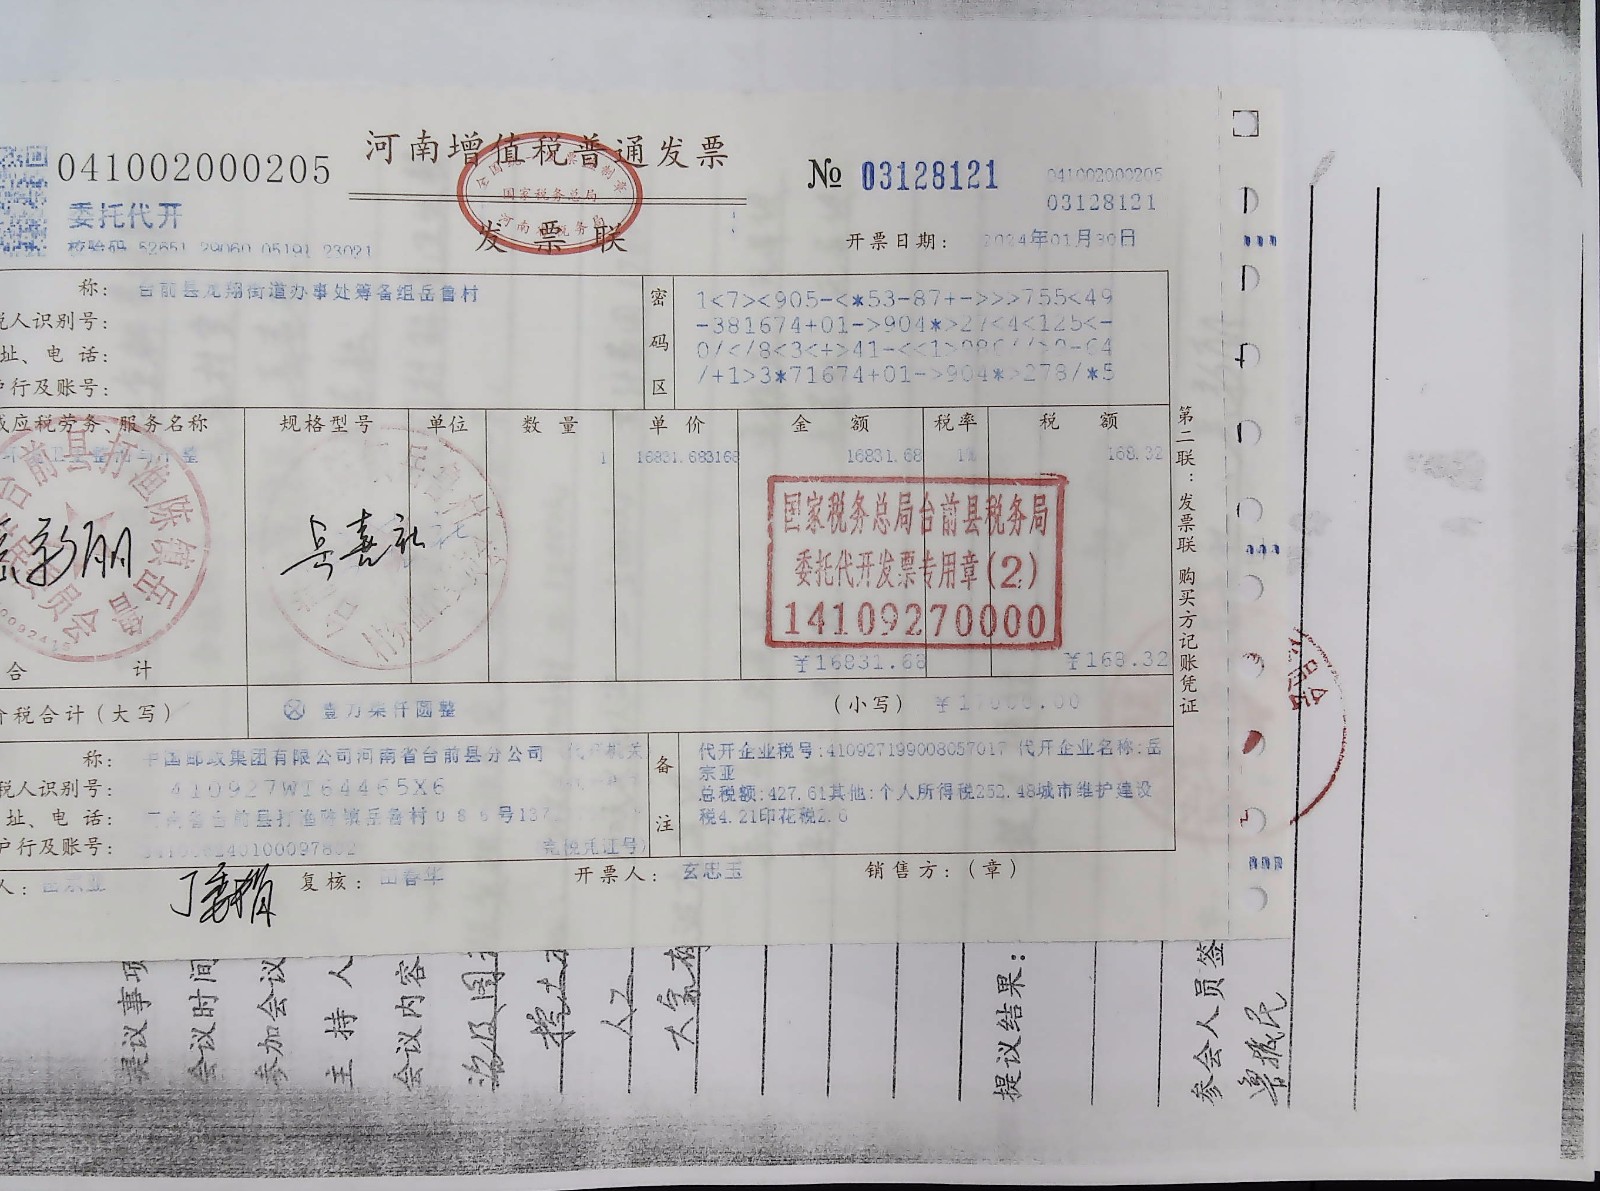 河南增值税普通发票
041002000205
№ 03128121
041002000205
03128121
委托代开
发票联
校验码 52651 29060 05191 23021
开票日期: 2024年01月30日
称: 台前县龙翔街道办事处筹备组岳鲁村
税人识别号:
址、电 话:
户行及账号:
密码区
1<7><905-<*53-87+->>>755<49
-381674+01->904*>27<4<125<-
/+1>3*71674+01->904*>278/*5
或应税劳务、服务名称 规格型号 单位 数 量 单 价 金 额 税率 税 额
1 16831.683168 16831.68 1% 168.32
台前县打渔陈镇岳鲁
委员会
国家税务总局台前县税务局
委托代开发票专用章(2)
14109270000
岳喜社
合 计 ¥16831.68 ¥168.32
价税合计(大写) ⊗ 壹万柒仟圆整 (小写) ¥17000.00
称: 中国邮政集团有限公司河南省台前县分公司 (代开机关
税人识别号: 410927WT64465X6
址、电 话: 河南省台前县打渔陈镇岳鲁村086号137
户行及账号: 完税凭证号)
备注
代开企业税号:410927199008057017 代开企业名称:岳
宗亚
总税额:427.61其他:个人所得税252.48城市维护建设
税4.21印花税2.6
人: 复核: 田春华 开票人: 玄忠玉 销售方:(章)
第二联:发票联 购买方记账凭证
提议事项
会议时间
参加会议
主 持 人
会议内容
人工
提议结果:
参会人员签